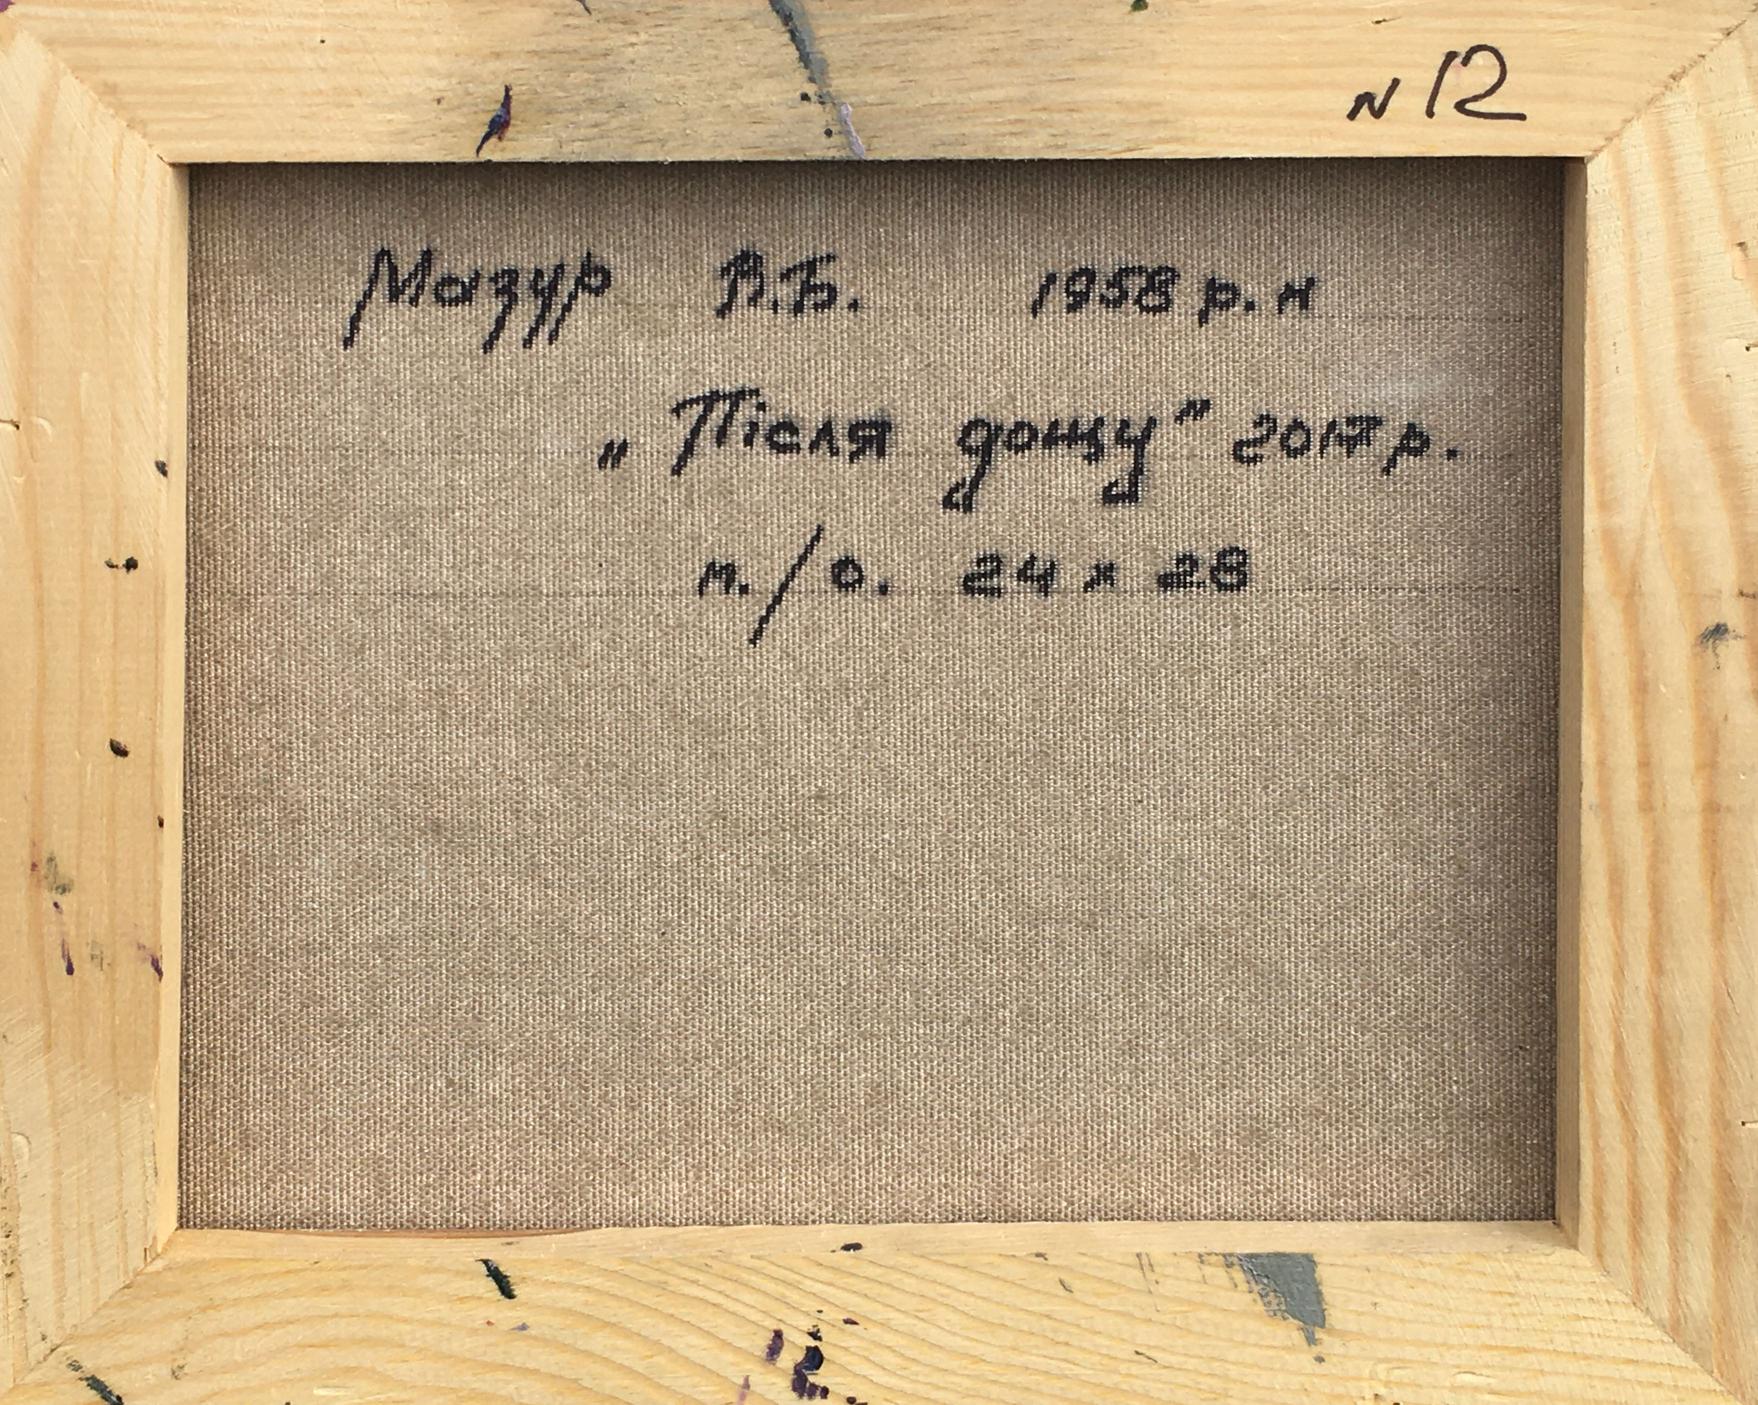 N 12
Мазур В.Б. 1958 р.н
„Після дощу" 2017 р.
п./о. 24 х 28